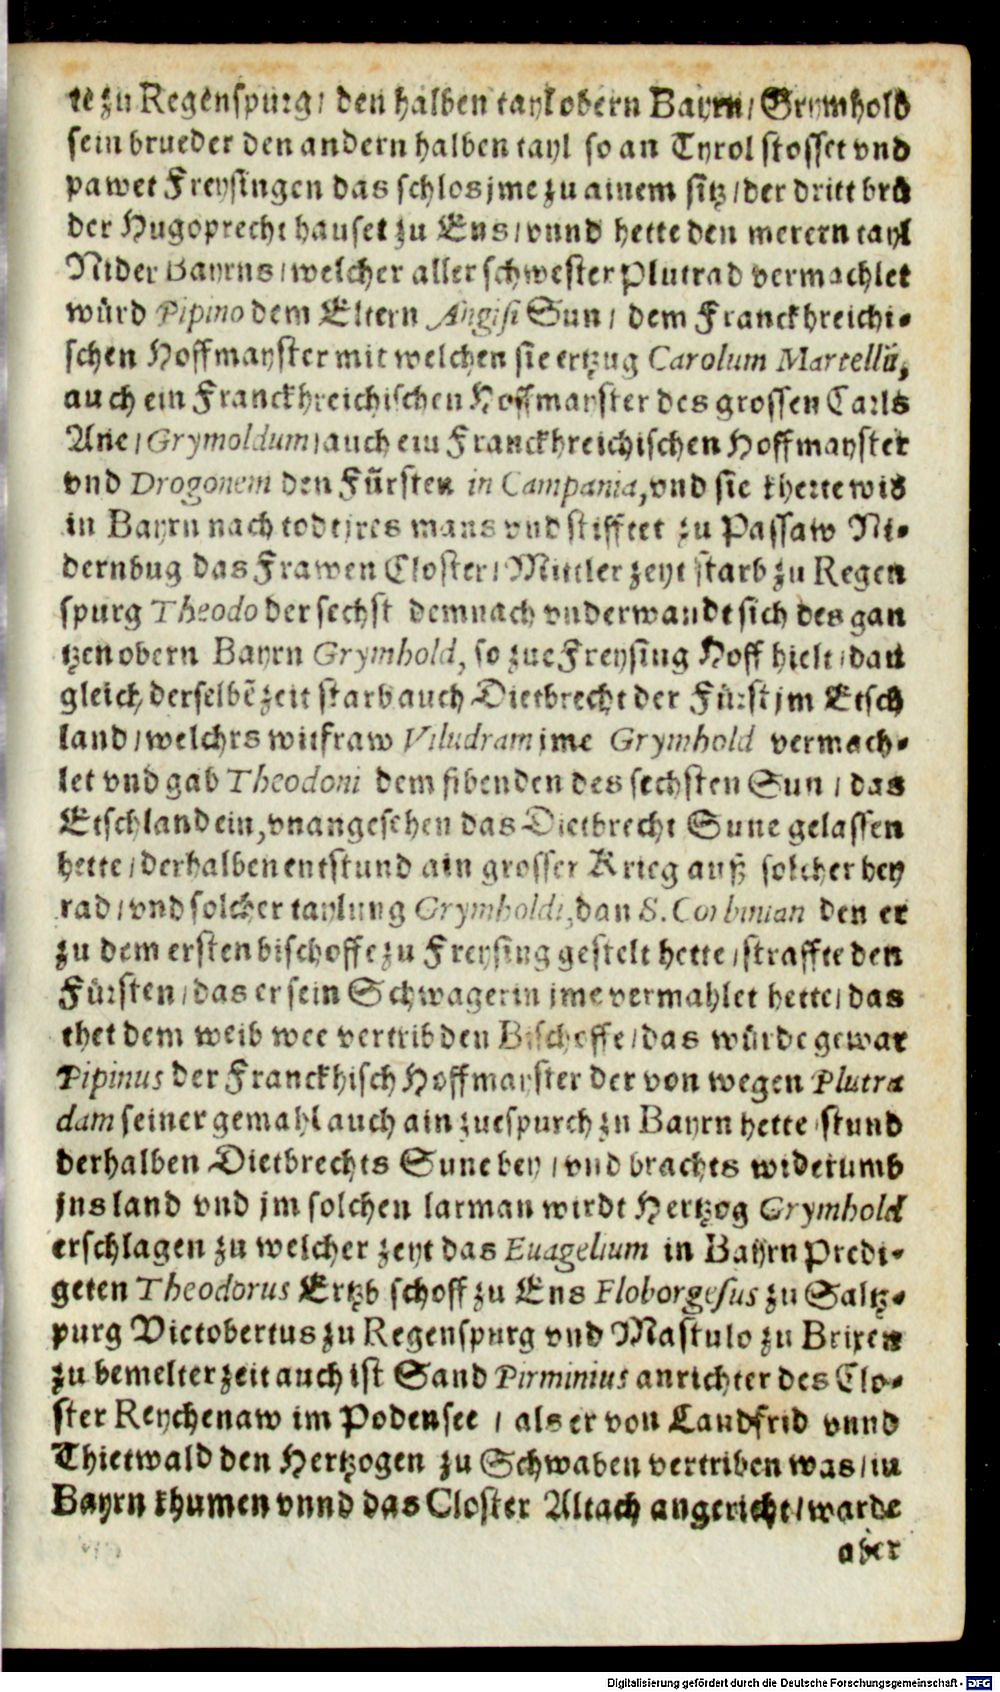 te zu Regenspurg/ den halben tayl obern Bayrn/ Grymhold
sein brueder den andern halben tayl so an Tyrol stosset vnd
pawet Freysingen das schlos jme zu ainem sitz/ der dritt brů
der Hugoprecht hauset zu Ens/ vnnd hette den merern tayl
Nider Bayrns/ welcher aller schwester Plutrad vermachlet
würd Pipino dem Eltern Angisi Sun/ dem Franckhreichi-
schen Hoffmayster mit welchen sie ertzug Carolum Martellū,
auch ein Franckhreichischen Hoffmayster des grossen Carls
Ane/ Grymoldum/ auch ein Franckhreichischen Hoffmayster
vnd Drogonem den Fürsten in Campania, vnd sie kherte wid
in Bayrn nach todt jres mans vnd stifftet zu Passaw Ni-
dernbug das Frawen Closter/ Mittler zeyt starb zu Regen
spurg Theodo der sechst demnach vnderwandt sich des gan
tzen obern Bayrn Grymhold, so zue Freysing Hoff hielt/ dan
gleich derselbē zeit starb auch Dietbrecht der Fürst jm Etsch
land/ welchrs witfraw Viludram jme Grymhold vermach-
let vnd gab Theodoni dem sibenden des sechsten Sun/ das
Etschland ein, vnangesehen das Dietbrecht Sune gelassen
hette/ derhalben entstund ain grosser Krieg auß solcher hey
rad/ vnd solcher taylung Grymholdi, dan S. Corbinian den er
zu dem ersten bischoffe zu Freysing gestelt hette/ straffte den
Fürsten/ das er sein Schwagerin jme vermahlet hette/ das
thet dem weib wee vertrib den Bischoffe/ das würde gewar
Pipinus der Franckhisch Hoffmayster der von wegen Plutra
dam seiner gemahl auch ain zuespurch zu Bayrn hette stund
derhalben Dietbrechts Sune bey/ vnd brachts widerumb
jns land vnd jm solchen larman wirdt Hertzog Grymhold
erschlagen zu welcher zeyt das Euagelium in Bayrn Predi-
geten Theodorus Ertzb schoff zu Ens Floborgesus zu Saltz-
purg Victobertus zu Regenspurg vnd Mastulo zu Brixen
zu bemelter zeit auch ist Sand Pirminius anrichter des Clo-
ster Reychenaw im Podensee/ als er von Landfrid vnnd
Thietwald den Hertzogen zu Schwaben vertriben was/ in
Bayrn khumen vnnd das Closter Altach angericht/ warde
aber
Digitalisierung gefördert durch die Deutsche Forschungsgemeinschaft - DFG